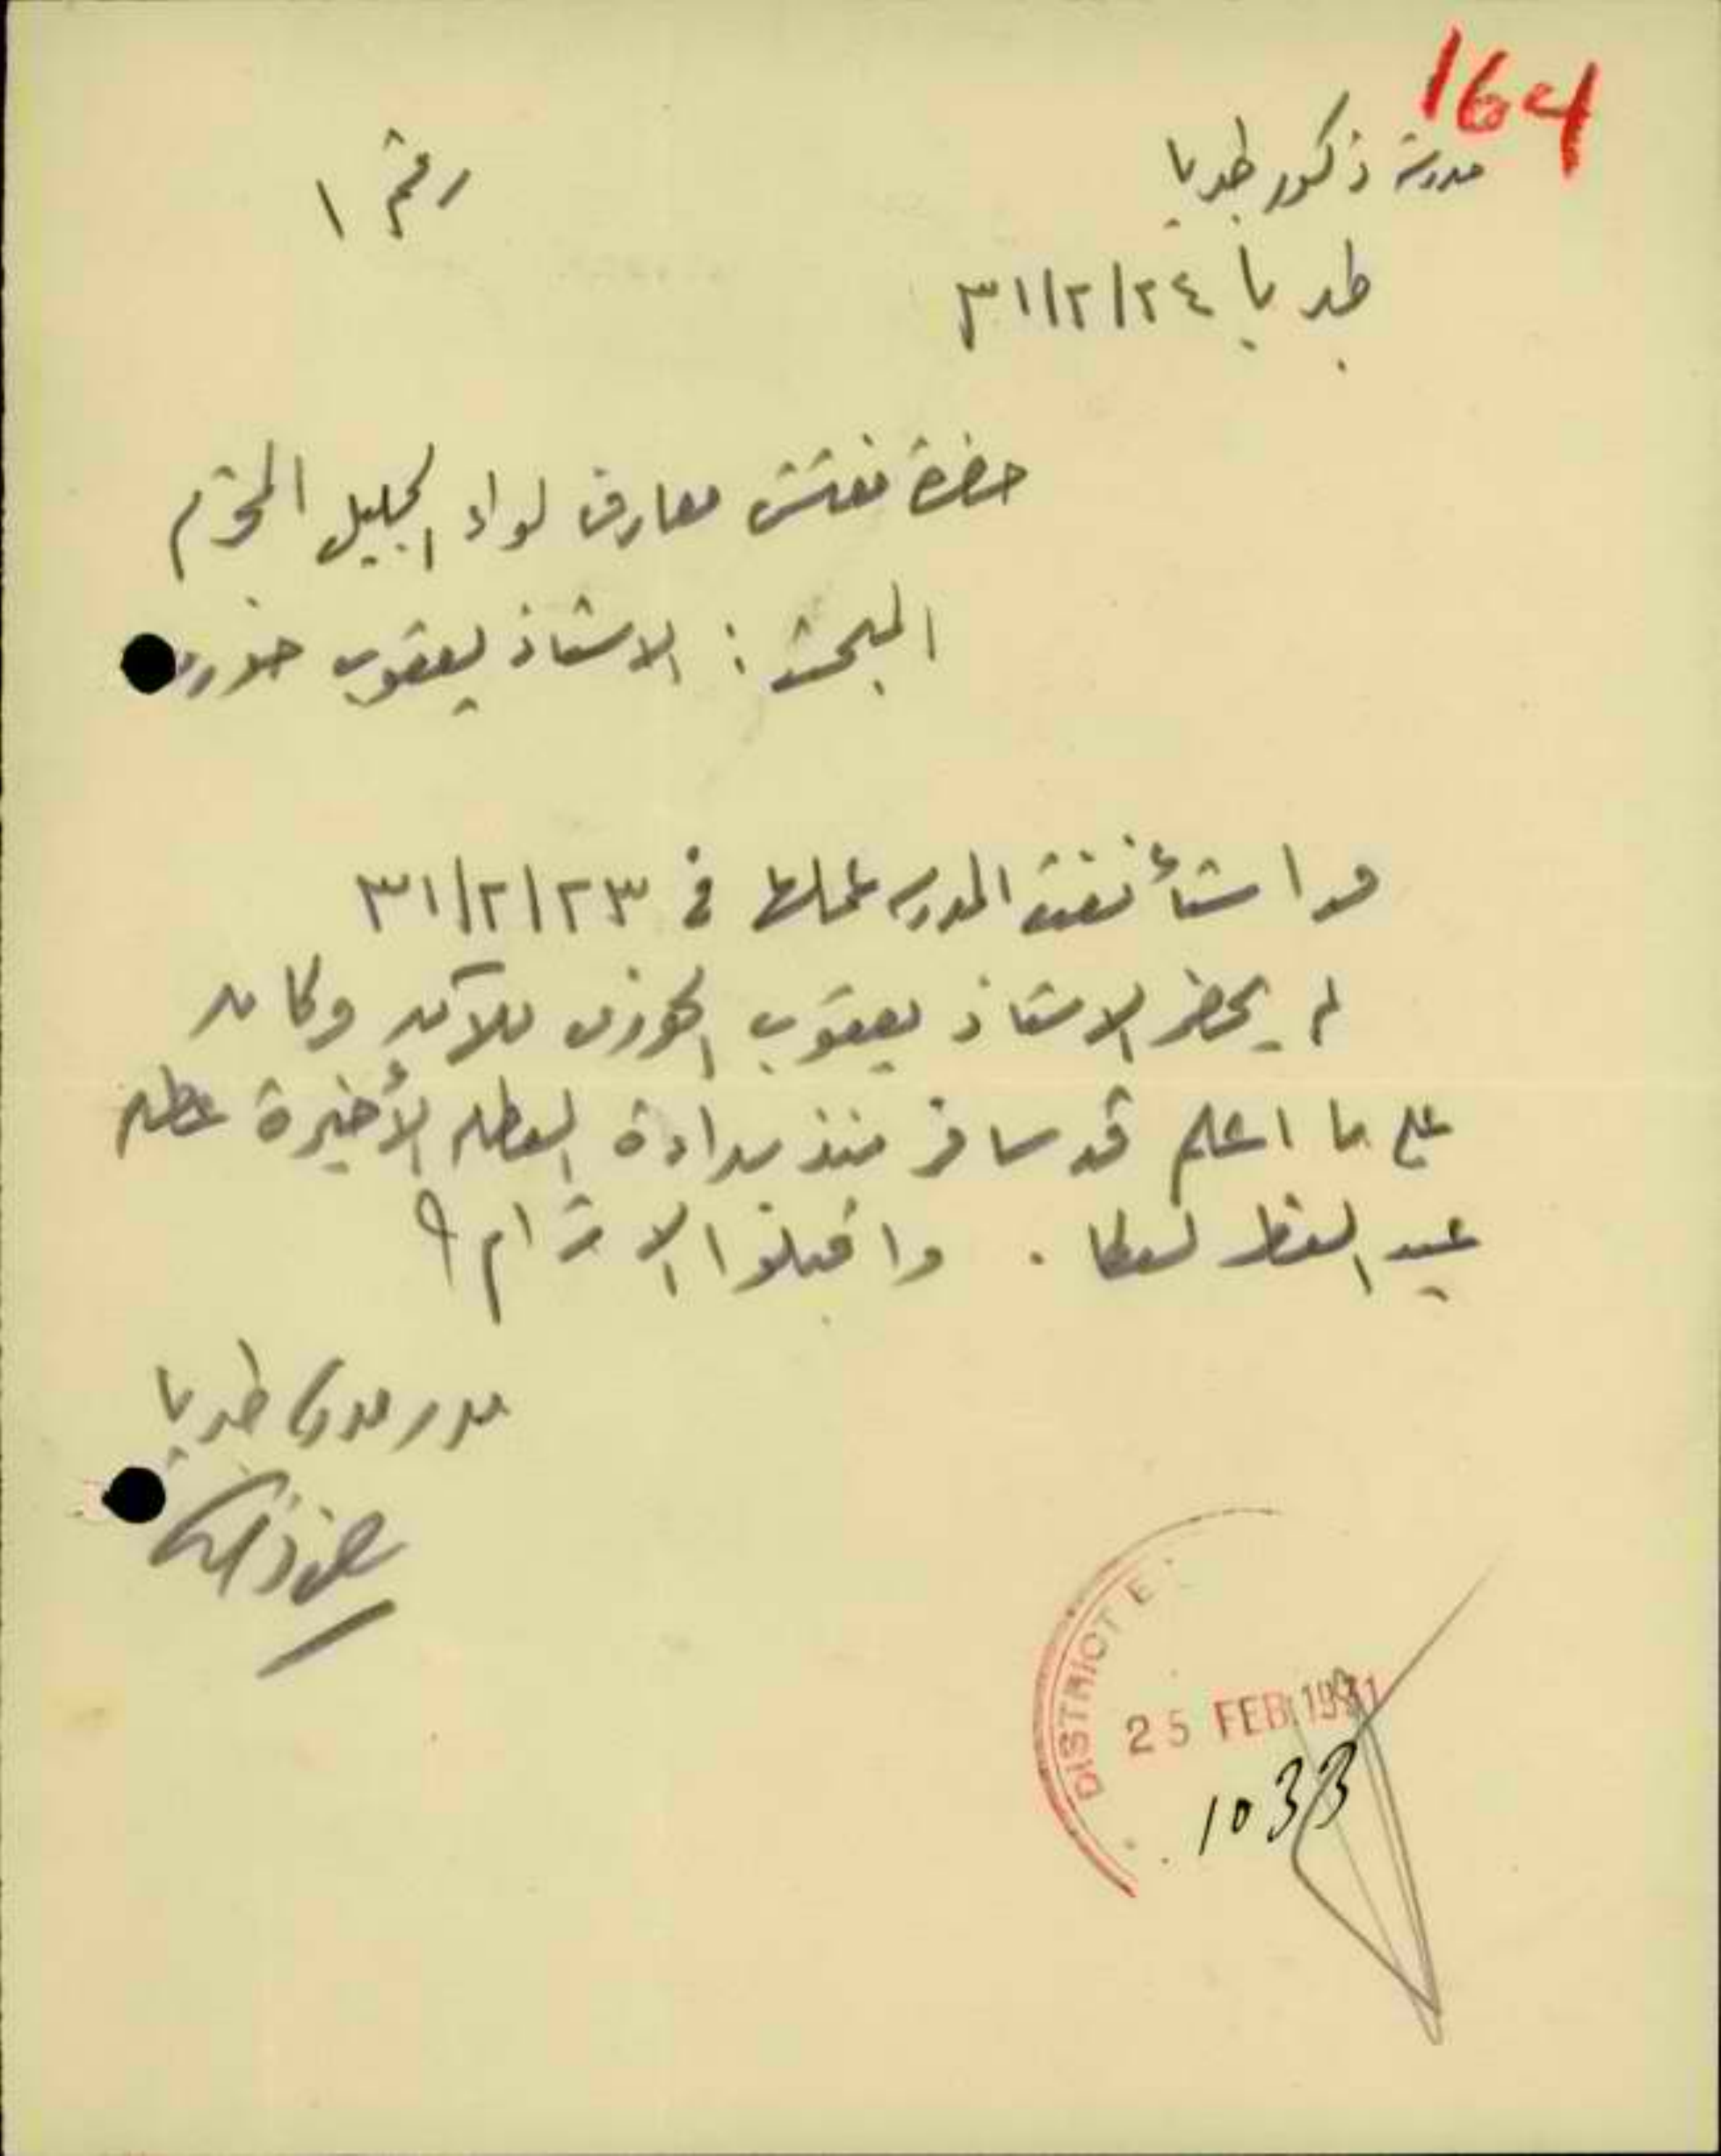 164
مدرسة ذكور طبريا
رقم ١
طبريا ٣١/٢/٢٤
حضرة مفتش معارف لواء الجليل المحترم
المبحث : الاستاذ يعقوب خوري
قد استأنفت المدرسة عملها في ٣١/٢/٢٣
لم يحضر الاستاذ يعقوب الخوري للآن وكان
على ما اعلم قد سافر منذ بداءة العطلة الأخيرة عطلة
عيد الفطر . واقبلوا الاحترام
مدير مدرسة طبريا
DISTRICT E
25 FEB 1931
1033